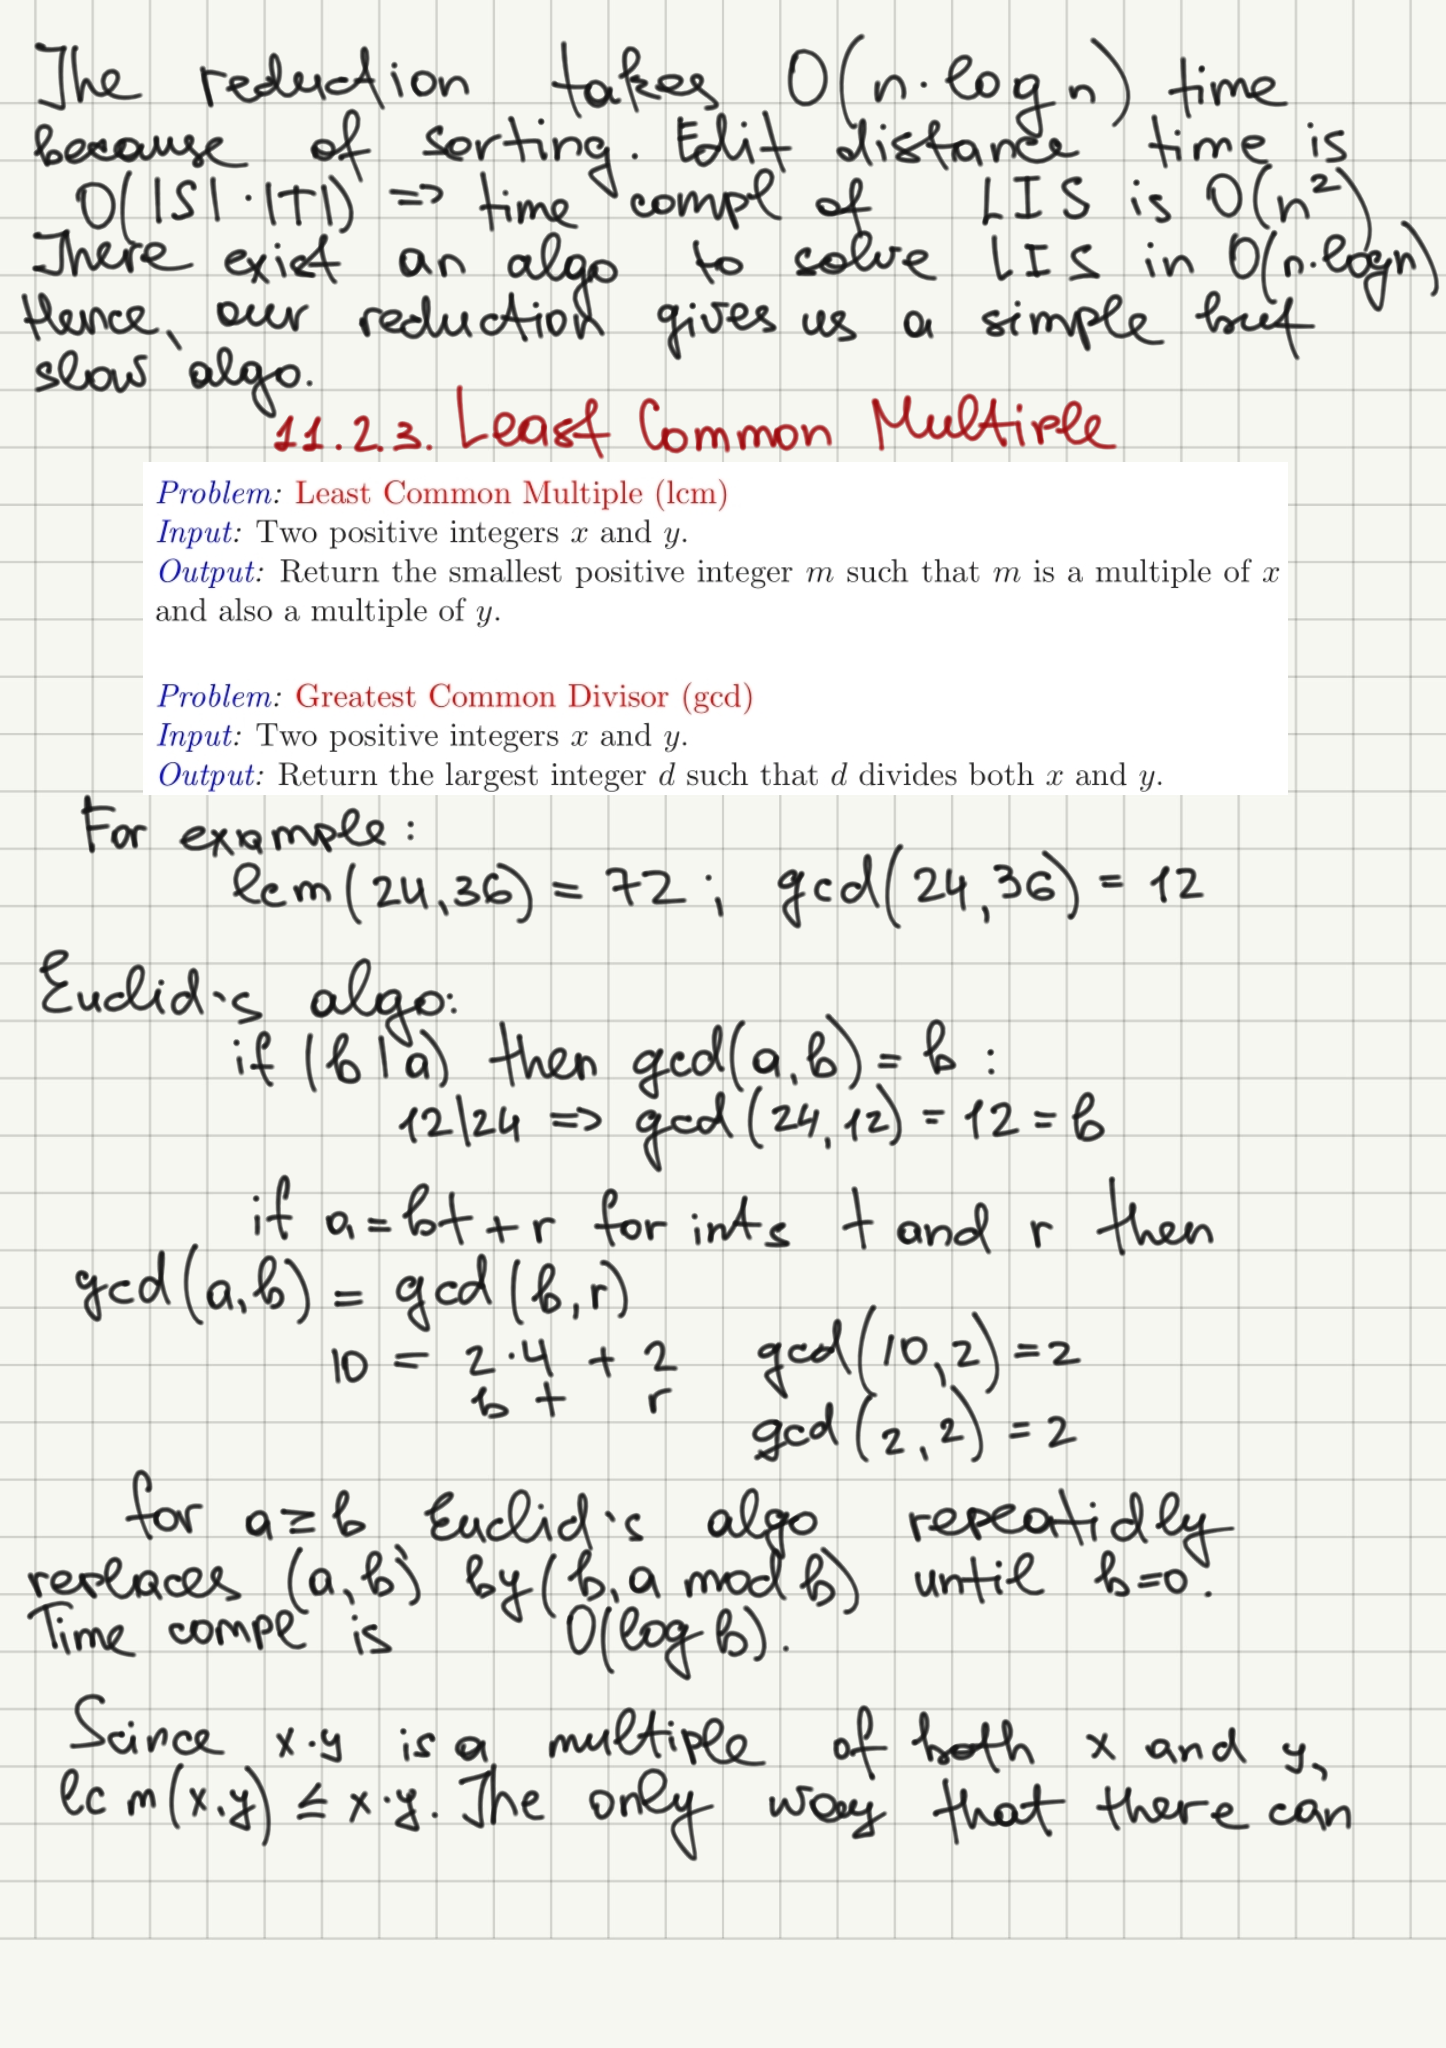 The reduction takes O(n·log n) time
because of sorting. Edit distance time is
O(|S|·|T|) => time compl of LIS is O(n²)
There exist an algo to solve LIS in O(n·logn)
Hence, our reduction gives us a simple but
slow algo.
11.2.3. Least Common Multiple
Problem: Least Common Multiple (lcm)
Input: Two positive integers x and y.
Output: Return the smallest positive integer m such that m is a multiple of x
and also a multiple of y.
Problem: Greatest Common Divisor (gcd)
Input: Two positive integers x and y.
Output: Return the largest integer d such that d divides both x and y.
For example:
lcm(24,36) = 72; gcd(24,36) = 12
Euclid's algo:
if (b|a) then gcd(a,b) = b:
12|24 => gcd(24,12) = 12 = b
if a = bt + r for ints t and r then
gcd(a,b) = gcd(b,r)
10 = 2·4 + 2 gcd(10,2) = 2
b t r
gcd(2,2) = 2
for a ≥ b Euclid's algo repeatidly
replaces (a,b) by (b, a mod b) until b=0.
Time compl is O(log b).
Scince x·y is a multiple of both x and y,
lcm(x,y) ≤ x·y. The only way that there can